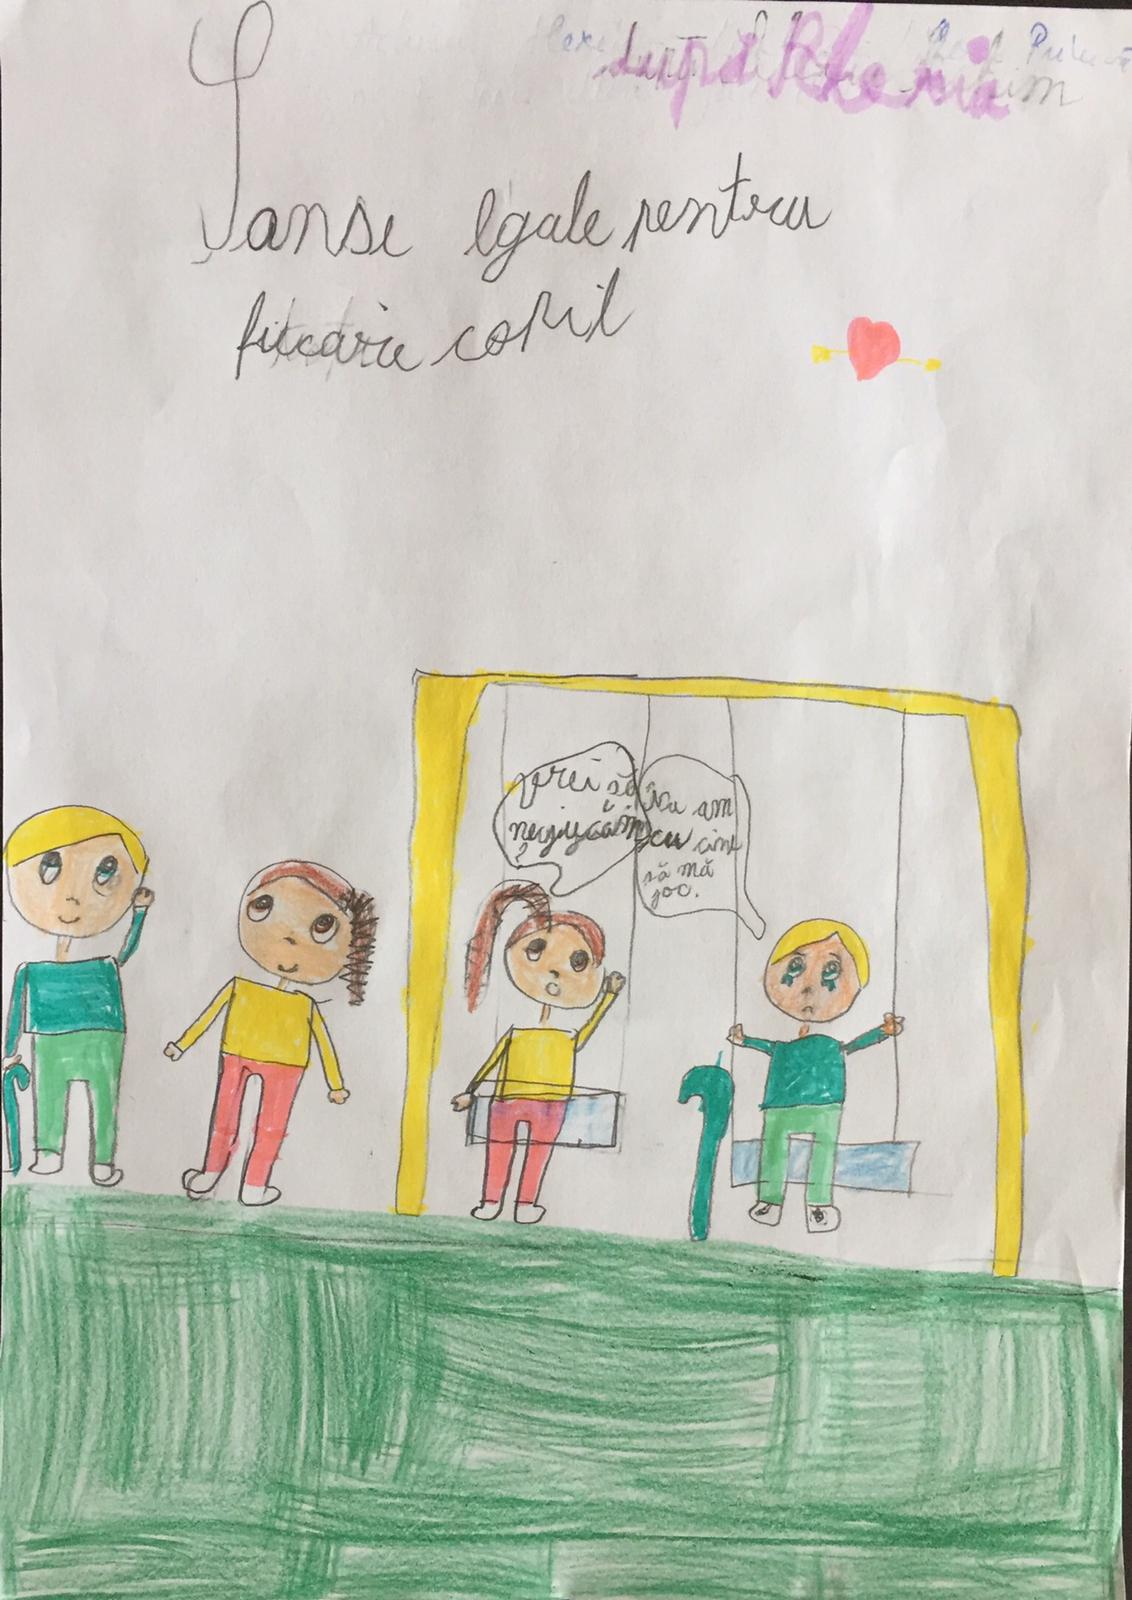 Șanse egale pentru
fiecare copil
vrei să
ne jucăm
?
Nu am
cu cine
să mă
joc.